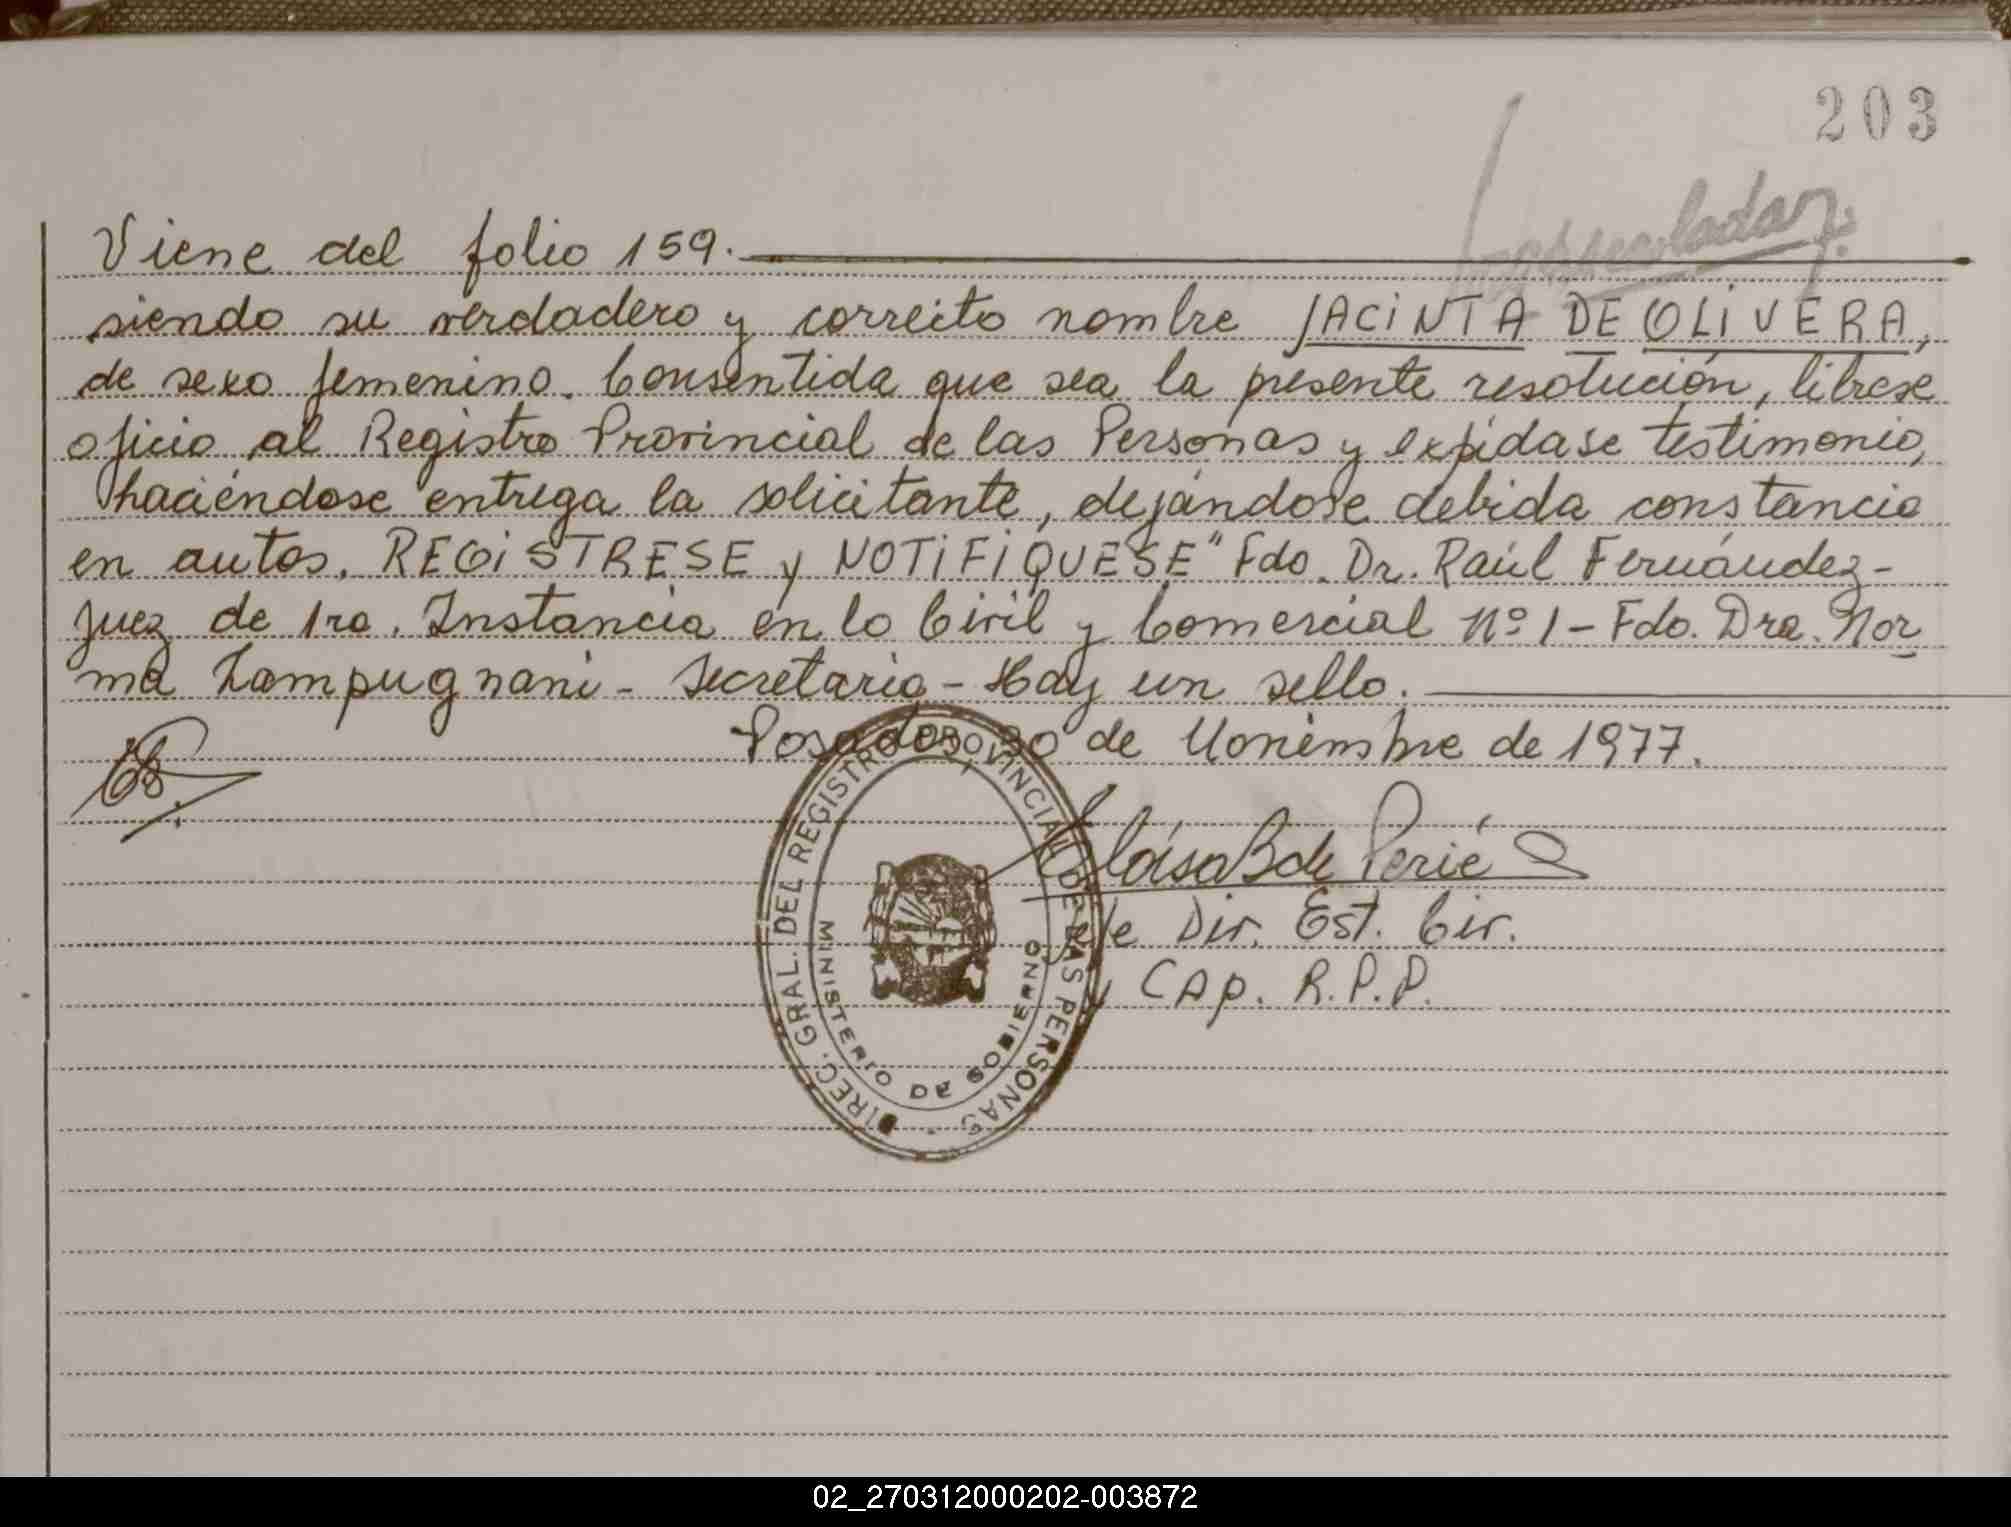 203
Viene del folio 159.
siendo su verdadero y correcto nombre JACINTA DE OLIVERA,
de sexo femenino. Consentida que sea la presente resolución, librese
oficio al Registro Provincial de las Personas y expídase testimonio,
haciéndose entrega la solicitante, dejándose debida constancia
en autos. REGISTRESE y NOTIFIQUESE" Fdo. Dr. Raúl Fernández-
Juez de 1ra. Instancia en lo Civil y Comercial Nº 1 - Fdo. Dra. Nor
ma Lampugnani - Secretaria - Hay un sello.
Posadas, 30 de Noviembre de 1977.
DIREC. GRAL. DEL REGISTRO PROVINCIAL DE LAS PERSONAS
MINISTERIO DE GOBIERNO
B de Perié
Jefe Dir. Est. Civ.
y Cap. R.P.P.
02_270312000202-003872